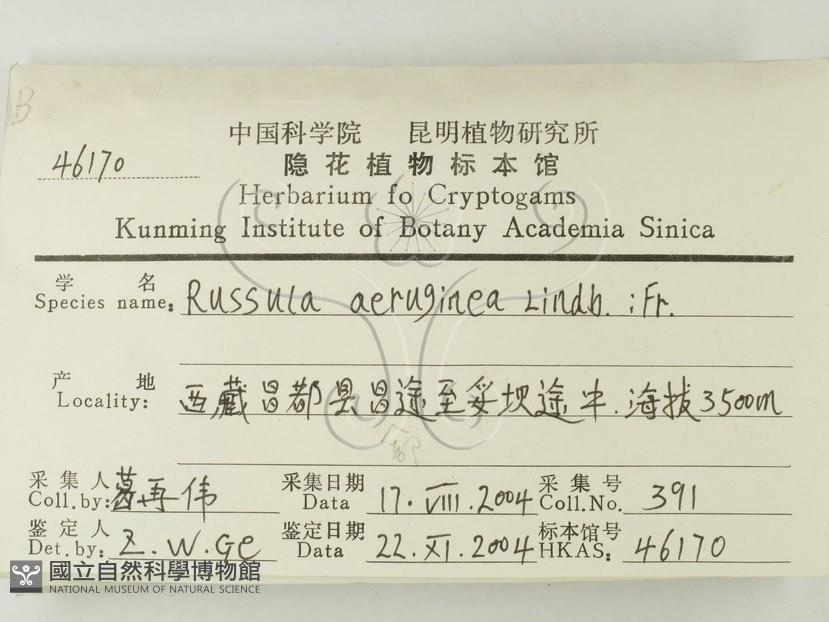 B
中国科学院 昆明植物研究所
46170
隐花植物标本馆
Herbarium fo Cryptogams
Kunming Institute of Botany Academia Sinica
学 名
Species name: Russula aeruginea Lindb. : Fr.
产 地
Locality: 西藏昌都县昌途至妥坝途中. 海拔3500m
都
采集人 葛再伟 采集日期 17.VIII.2004 采集号 391
Coll.by: Data Coll.No.
鉴定人 Z.W.Ge 鉴定日期 22.XI.2004 标本馆号 46170
Det.by: Data HKAS:
國立自然科學博物館
NATIONAL MUSEUM OF NATURAL SCIENCE